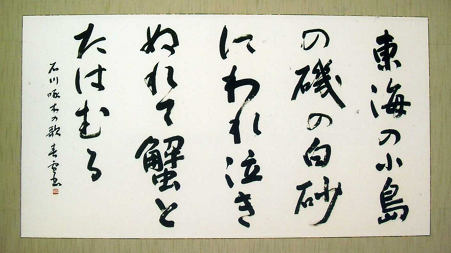 東海の小島
の磯の白砂
にわれ泣き
ぬれて蟹と
たはむる
石川啄木の歌 春雪書